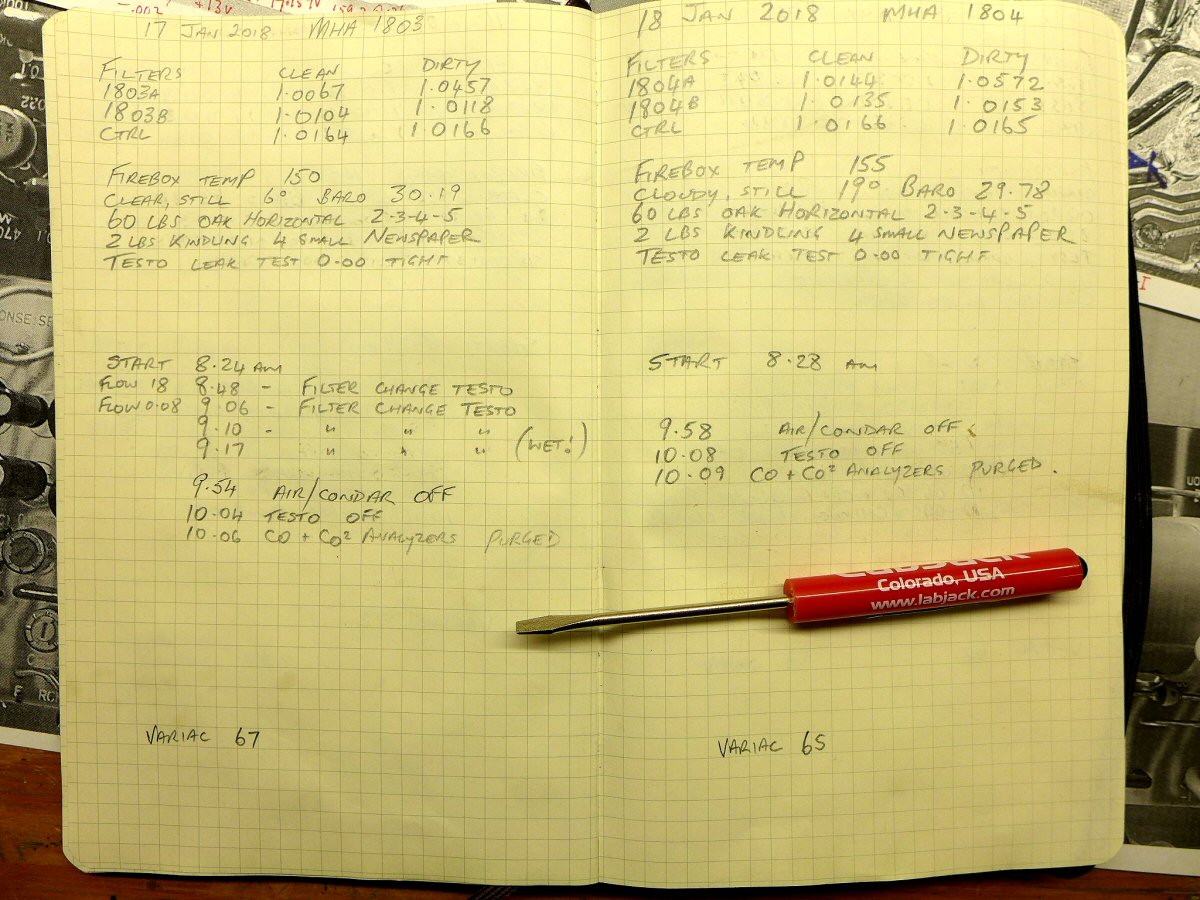 17 JAN 2018 MHA 1803
FILTERS CLEAN DIRTY
1803A 1.0067 1.0457
1803B 1.0104 1.0118
CTRL 1.0164 1.0166
FIREBOX TEMP 150
CLEAR, STILL 6° BARO 30.19
60 LBS OAK HORIZONTAL 2-3-4-5
2 LBS KINDLING 4 SMALL NEWSPAPER
TESTO LEAK TEST 0.00 TIGHT
START 8.24 AM
FLOW 18 8.48 - FILTER CHANGE TESTO
FLOW 0.08 9.06 - FILTER CHANGE TESTO
9.10 - " " "
9.17 " " " (WET!)
9.54 AIR/CONDAR OFF
10.04 TESTO OFF
10.06 CO + CO2 ANALYZERS PURGED
VARIAC 67
18 JAN 2018 MHA 1804
FILTERS CLEAN DIRTY
1804A 1.0144 1.0572
1804B 1.0135 1.0153
CTRL 1.0166 1.0165
FIREBOX TEMP 155
CLOUDY, STILL 19° BARO 29.78
60 LBS OAK HORIZONTAL 2-3-4-5
2 LBS KINDLING 4 SMALL NEWSPAPER
TESTO LEAK TEST 0.00 TIGHT
START 8.28 AM
9.58 AIR/CONDAR OFF
10.08 TESTO OFF
10.09 CO + CO² ANALYZERS PURGED.
VARIAC 65
Colorado, USA
www.labjack.com
+13V
ONSE SE